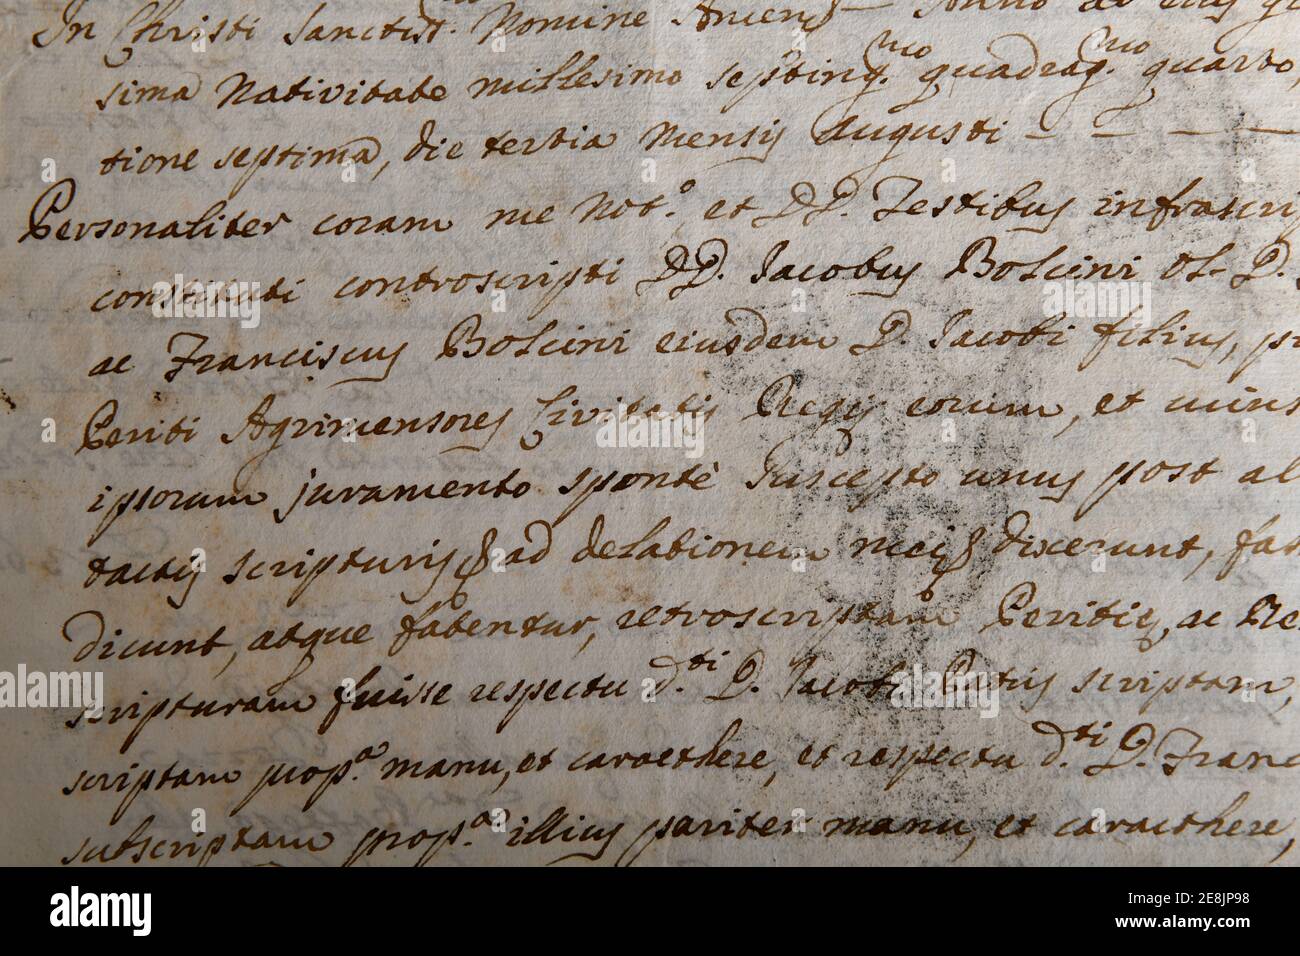 In Christi Sanctiss. Nomine Amen — Anno ab eius
sima Nativitate millesimo septing.mo quadrag.mo quarto,
tione septima, die tertia Mensis Augusti — — — —
Personaliter coram me Not.o et DD. Testibus infrascri
constituti controscripti DD. Jacobus Bolcini ol. D.
ac Franciscus Bolcini eiusdem D. Jacobi filius,
Periti Agrimensores Civitatis Regij eorum, et
ipsorum juramento spontè suscepto unus post al
tactis scripturis ad delationem mei dixerunt, fat
dicunt, atque fatentur, retroscriptam Peritis, ac Re
scripturam fuisse respectu d.ti D. Jacobi Patris scriptam,
scriptam prop.a manu, et caracthere, et respectu d.ti D. Franc
subscriptam prop.a illius pariter manu, et caracthere,
alamy
a
alamy
a
alamy
a
alamy
Image ID: 2E8JP98
www.alamy.com